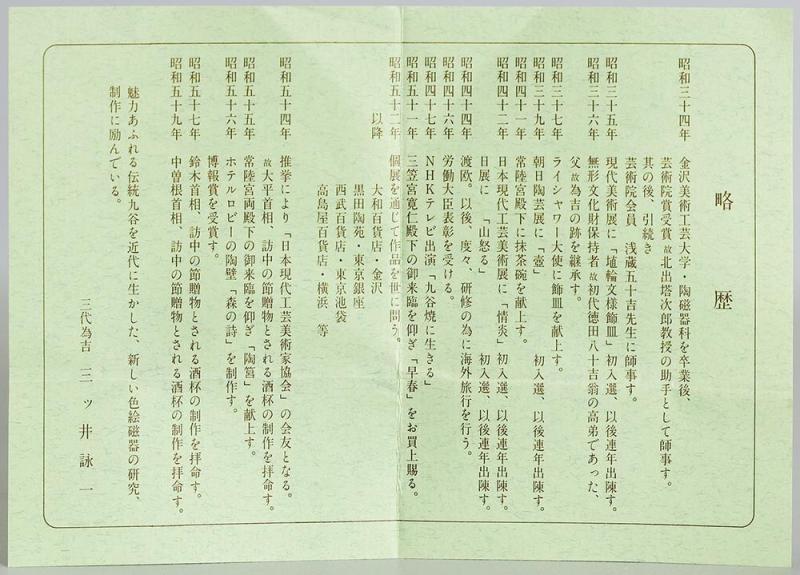 略歴
昭和三十四年 金沢美術工芸大学・陶磁器科を卒業後、
芸術院賞受賞故北出塔次郎教授の助手として師事す。
其の後、引続き
芸術院会員 浅蔵五十吉先生に師事す。
昭和三十五年 現代美術展に「埴輪文様飾皿」初入選、以後連年出陳す。
昭和三十六年 無形文化財保持者故初代徳田八十吉翁の高弟であった、
父故為吉の跡を継承す。
昭和三十七年 ライシャワー大使に飾皿を献上す。
昭和三十九年 朝日陶芸展に「壺」 初入選、以後連年出陳す。
昭和四十一年 常陸宮殿下に抹茶碗を献上す。
昭和四十二年 日本現代工芸美術展に「情炎」初入選、以後連年出陳す。
日展に 「山怒る」 初入選、以後連年出陳す。
昭和四十四年 渡欧。以後、度々、研修の為に海外旅行を行う。
昭和四十六年 労働大臣表彰を受ける。
昭和四十七年 NHKテレビ出演「九谷焼に生きる」
昭和五十一年 三笠宮寛仁殿下の御来臨を仰ぎ「早春」をお買上賜る。
昭和五十二年 個展を通じて作品を世に問う。
以降 大和百貨店・金沢
黒田陶苑・東京銀座
西武百貨店・東京池袋
高島屋百貨店・横浜 等
昭和五十四年 推挙により「日本現代工芸美術家協会」の会友となる。
故大平首相、訪中の節贈物とされる酒杯の制作を拝命す。
昭和五十五年 常陸宮両殿下の御来臨を仰ぎ「陶筥」を献上す。
昭和五十六年 ホテルロビーの陶壁「森の詩」を制作す。
博報賞を受賞す。
昭和五十七年 鈴木首相、訪中の節贈物とされる酒杯の制作を拝命す。
昭和五十九年 中曽根首相、訪中の節贈物とされる酒杯の制作を拝命す。
魅力あふれる伝統九谷を近代に生かした、新しい色絵磁器の研究、
制作に励んでいる。
三代為吉 三ッ井詠一